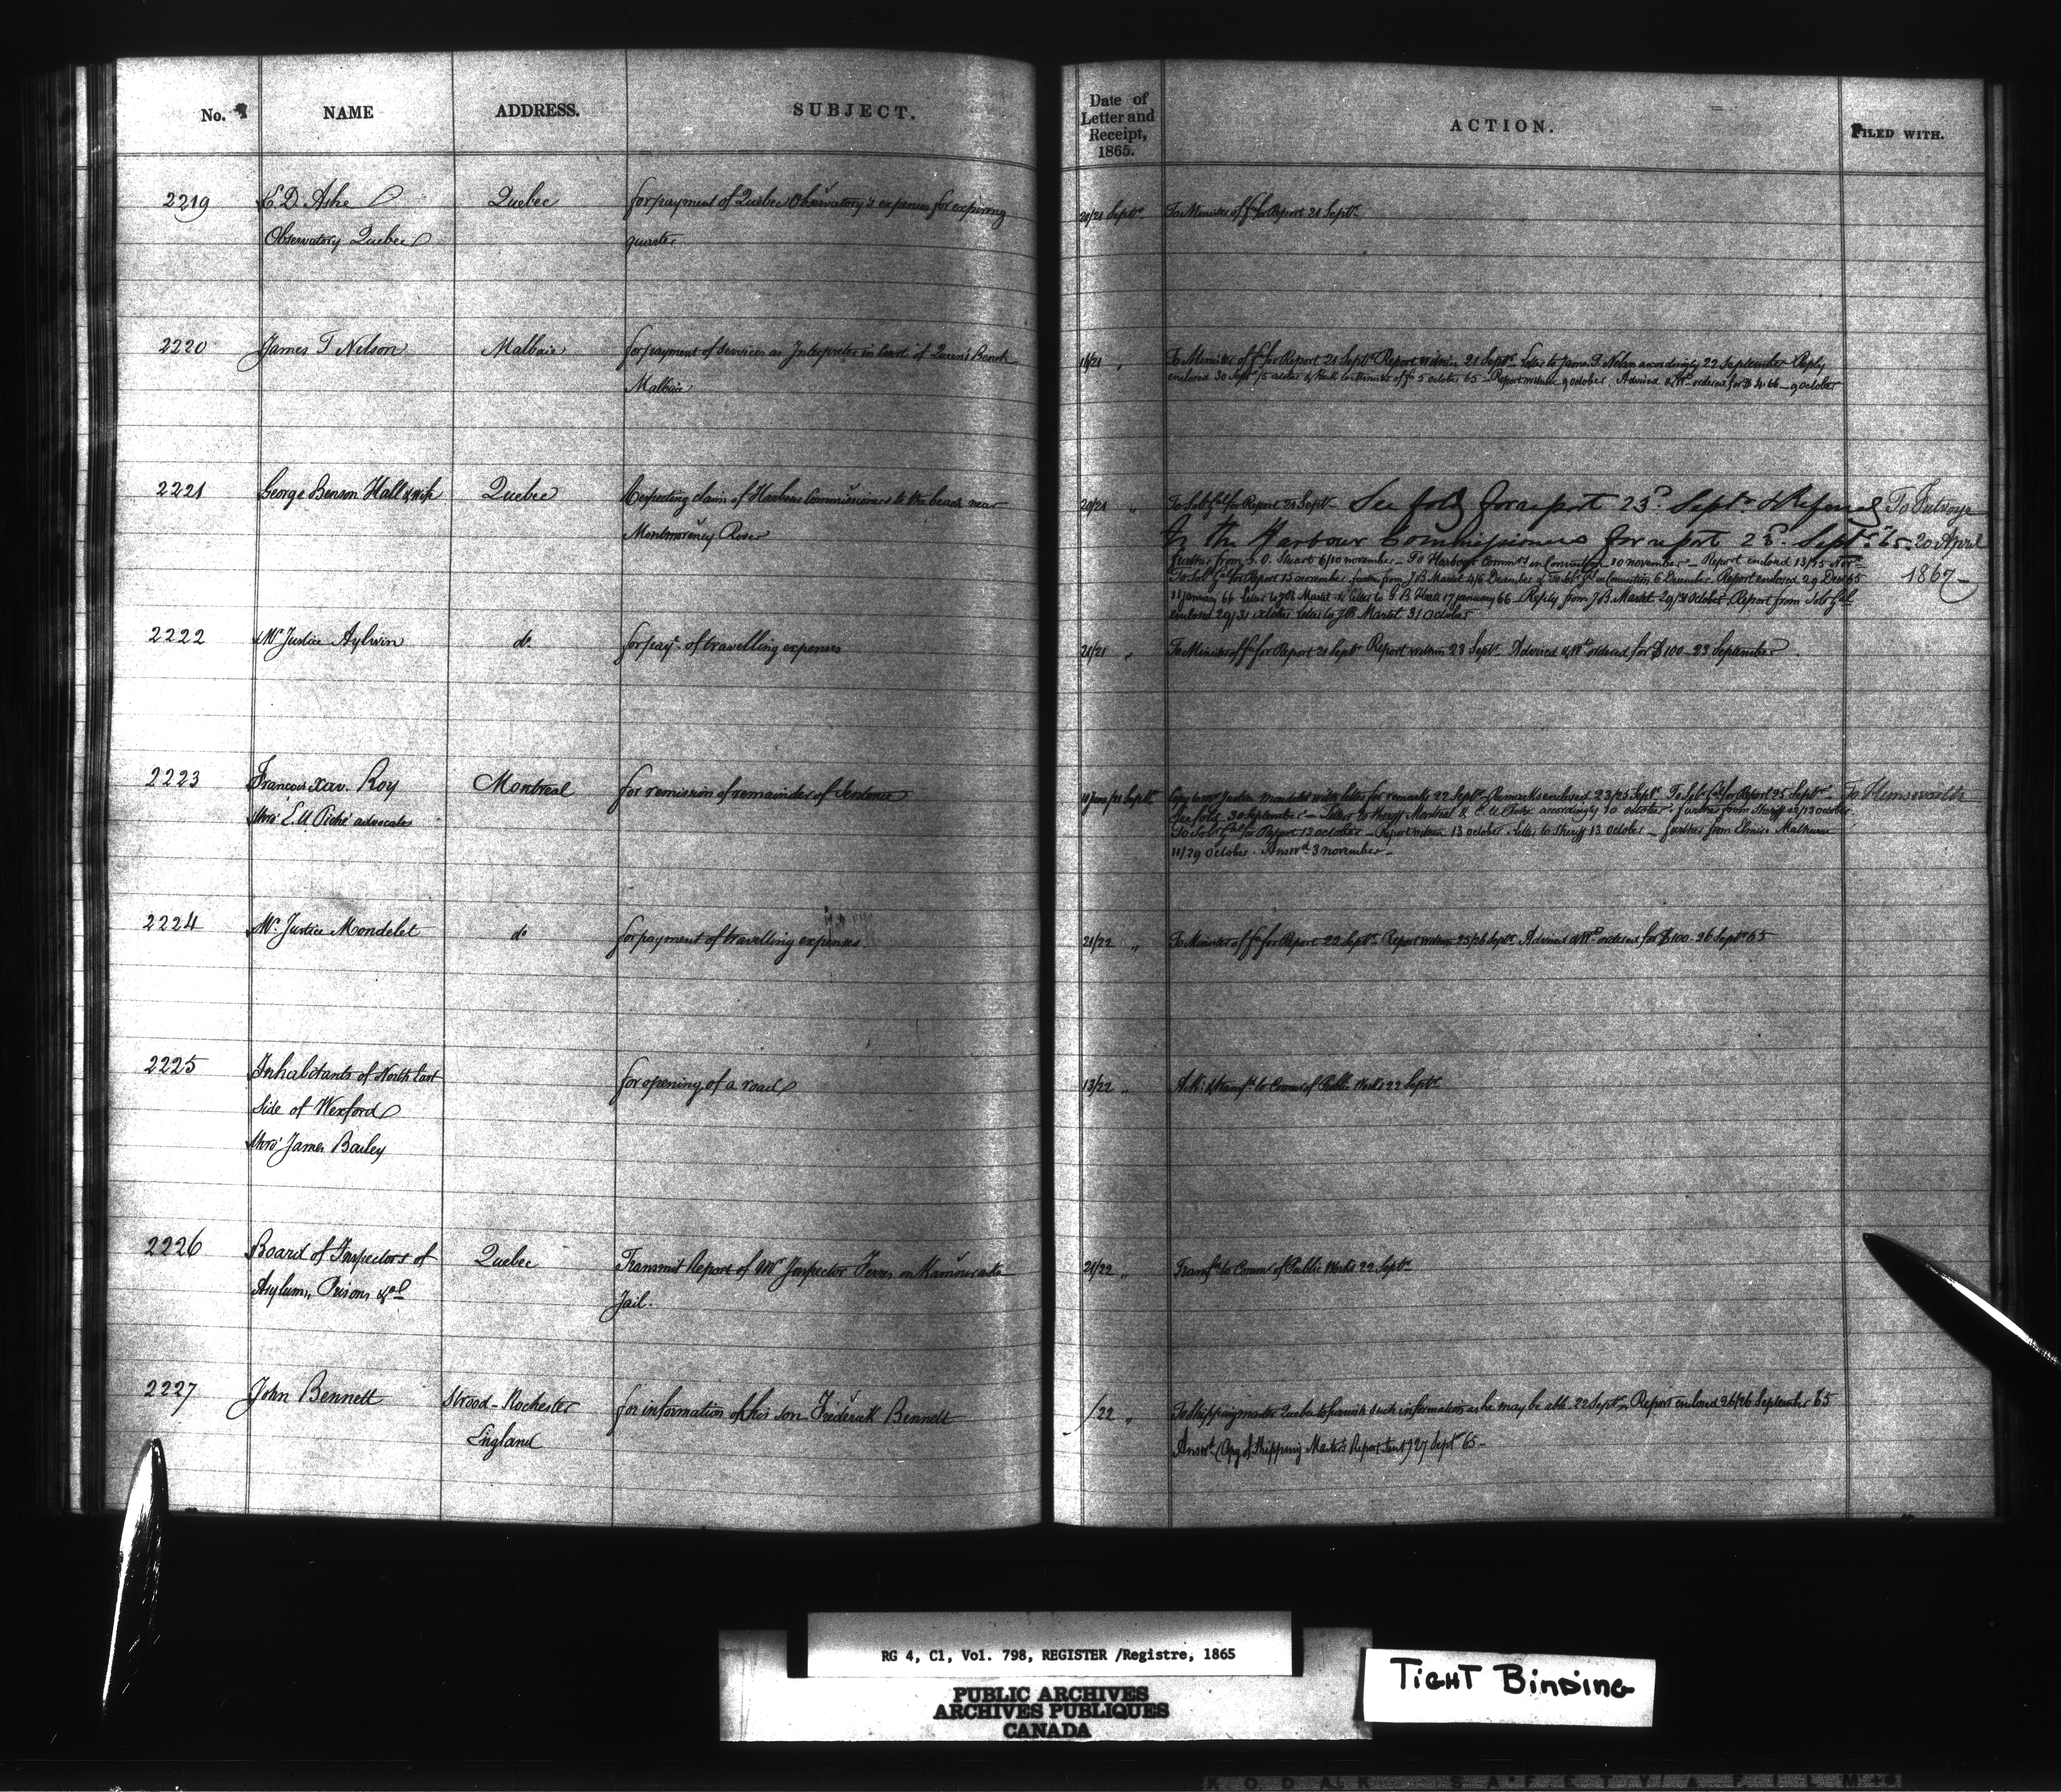 No. NAME ADDRESS. SUBJECT. Date of Letter and Receipt, 1865. ACTION. FILED WITH.
2219 E. D. Ashe Quebec for payment of Quebec Observatory's expenses for expiring 20/21 Septr To Minister of fce for Report 21 Septr
Observatory Quebec quarter
2220 James T Nelson Malbaie for payment of services as Interpreter in level of Queen's Bench 18/21 " To Minister of fce for Report 21 Septr Report within 21 Septr Letter to James T. Nelson accordingly 22 September Reply
Malbaie enclosed 30 Septr/5 october to Minister of fce 5 october 65 - Report within 9 october. Advised & Wt ordered for $4.66 - 9 october
2221 George Benson Hall & wife Quebec Respecting claim of Harbour Commissioners to the beach near 20/21 " To Solr Gal for Report 21 Septr See fold for report 23d Septr & Referred To Futvoye
Montmorency River To the Harbour Commissioners for report 23d Septr 65. 20 April
further from G. O. Stuart 6/10 november - To Harbour Commrs 10 november - Report enclosed 13/15 Novr 1867 -
To Solr Gal for Report 15 november further from J B Martel 4/6 December 6 December Report enclosed 29 Dec 65
11 january 66 Letter to J B Martel & Letter to G. B Hall 17 january 66 - Reply from J B Martel 29/31 October Report from Solr Gal
enclosed 29/31 october Letter to J B Martel 31 October
2222 Mr Justice Aylwin do for payt of travelling expenses 21/21 " To Minister of fce for Report 21 Septr Report within 23 Septr Advised & Wt ordered for $100 - 23 September
2223 Francois Xav. Roy Montreal for remission of remainder of Sentence Septr Copy to Mr Justice Mondelet with letter for remarks 22 Septr Remarks enclosed 23/25 Septr To Solr Gal for Report 25 Septr To Hemsworth
thro' E. U Piché advocate See fold 30 September - Letters to Sheriff Montreal & E. U Piché accordingly 10 october further from Sheriff 12/13 october
To Solr Gal for Report 13 october - Report within 13 october. Letter to Sheriff 13 October - further from
11/29 October. Answd 3 november -
2224 Mr Justice Mondelet do for payment of travelling expenses 21/22 " To Minister of fce for Report 22 Septr Report within 25/26 Septr Advised & Wt ordered for $100 - 26 Septr 65
2225 Inhabitants of North East for opening of a road 13/22 " Ack & transfd to Commr of Public Works 22 Septr
Side of Wexford
thro' James Bailey
2226 Board of Inspectors of Quebec Transmit Report of Mr Inspector Ferres on Kamouraska 21/22 " Transfd to Commr of Public Works 22 Septr
Asylums, Prisons &c Jail.
2227 John Bennett Strood - Rochester for information of his son Frederick Bennett /22 " To Shipping master Quebec to furnish such information as he may be able 22 Septr, Report enclosed 26/26 September 65
England Answd (Copy of Shipping Master's Report sent) 27 Septr 65 -
RG 4, C1, Vol. 798, REGISTER /Registre, 1865
PUBLIC ARCHIVES
ARCHIVES PUBLIQUES
CANADA
TIGHT BINDING
KODAK SAFETY FILM